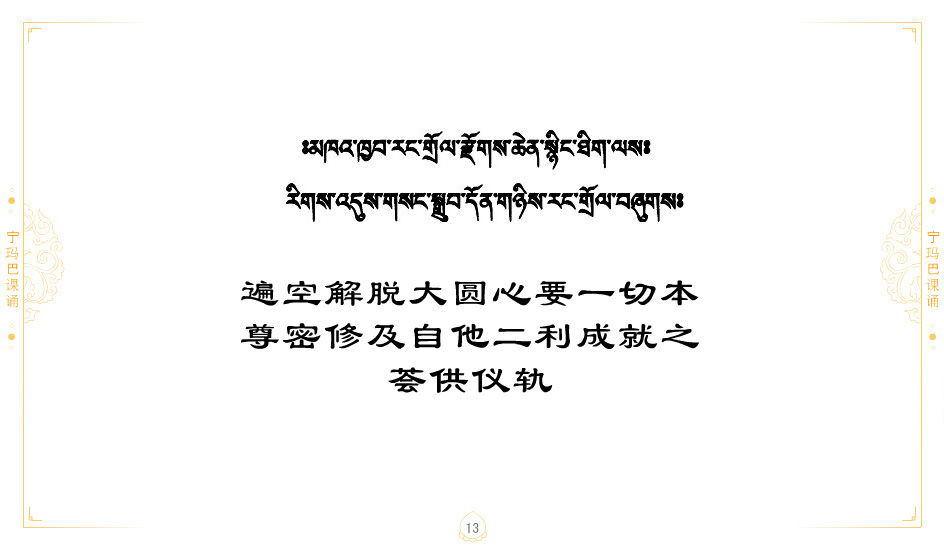 ༔མཁའ་ཁྱབ་རང་གྲོལ་རྫོགས་ཆེན་སྙིང་ཐིག་ལས༔
རིགས་འདུས་གསང་སྒྲུབ་དོན་གཉིས་རང་གྲོལ་བཞུགས༔
遍空解脱大圆心要一切本
尊密修及自他二利成就之
荟供仪轨
宁玛巴课诵
宁玛巴课诵
13